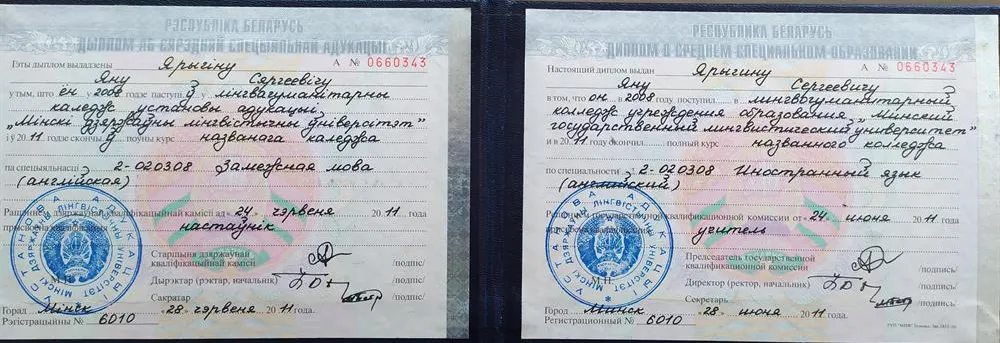 РЭСПУБЛІКА БЕЛАРУСЬ
ДЫПЛОМ АБ СЯРЭДНЯЙ СПЕЦЫЯЛЬНАЙ АДУКАЦЫІ
А № 0660343
Гэты дыплом выдадзены Ярыгіну
Яну Сергеевічу
у тым, што ён у 2008 годзе паступіў у лінгвагуманітарны
каледж установы адукацыі
„Мінскі дзяржаўны лінгвістычны ўніверсітэт"
і ў 2011 годзе скончыў поўны курс названага каледжа
па спецыяльнасці 2-020308 Замежная мова
(англійская)
Рашэннем дзяржаўнай кваліфікацыйнай камісіі ад «24» чэрвеня 2011 года
прысвоена кваліфікацыя настаўнік
Старшыня дзяржаўнай
кваліфікацыйнай камісіі /подпіс/
М.П.
Дырэктар (рэктар, начальнік) /подпіс/
Сакратар /подпіс/
Горад Мінск «28» чэрвеня 2011 года.
Рэгістрацыйны № 6010
УСТАНОВА АДУКАЦЫІ
МІНСКІ ДЗЯРЖАЎНЫ ЛІНГВІСТЫЧНЫ УНІВЕРСІТЭТ
РЕСПУБЛИКА БЕЛАРУСЬ
ДИПЛОМ О СРЕДНЕМ СПЕЦИАЛЬНОМ ОБРАЗОВАНИИ
А № 0660343
Настоящий диплом выдан Ярыгину
Яну Сергеевичу
в том, что он в 2008 году поступил в лингвогуманитарный
колледж учреждения образования „Минский
государственный лингвистический университет"
и в 2011 году окончил полный курс названного колледжа
по специальности 2-020308 Иностранный язык
(английский)
Решением государственной квалификационной комиссии от «24» июня 2011 года
присвоена квалификация учитель
Председатель государственной
квалификационной комиссии /подпись/
М.П.
Директор (ректор, начальник) /подпись/
Секретарь /подпись/
Город Минск «28» июня 2011 года.
Регистрационный № 6010
УСТАНОВА АДУКАЦЫІ
МІНСКІ ДЗЯРЖАЎНЫ ЛІНГВІСТЫЧНЫ УНІВЕРСІТЭТ